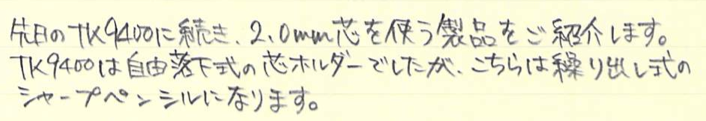 先日のTK9400に続き、2.0mm芯を使う製品をご紹介します。
TK9400は自由落下式の芯ホルダーでしたが、こちらは繰り出し式の
シャープペンシルになります。